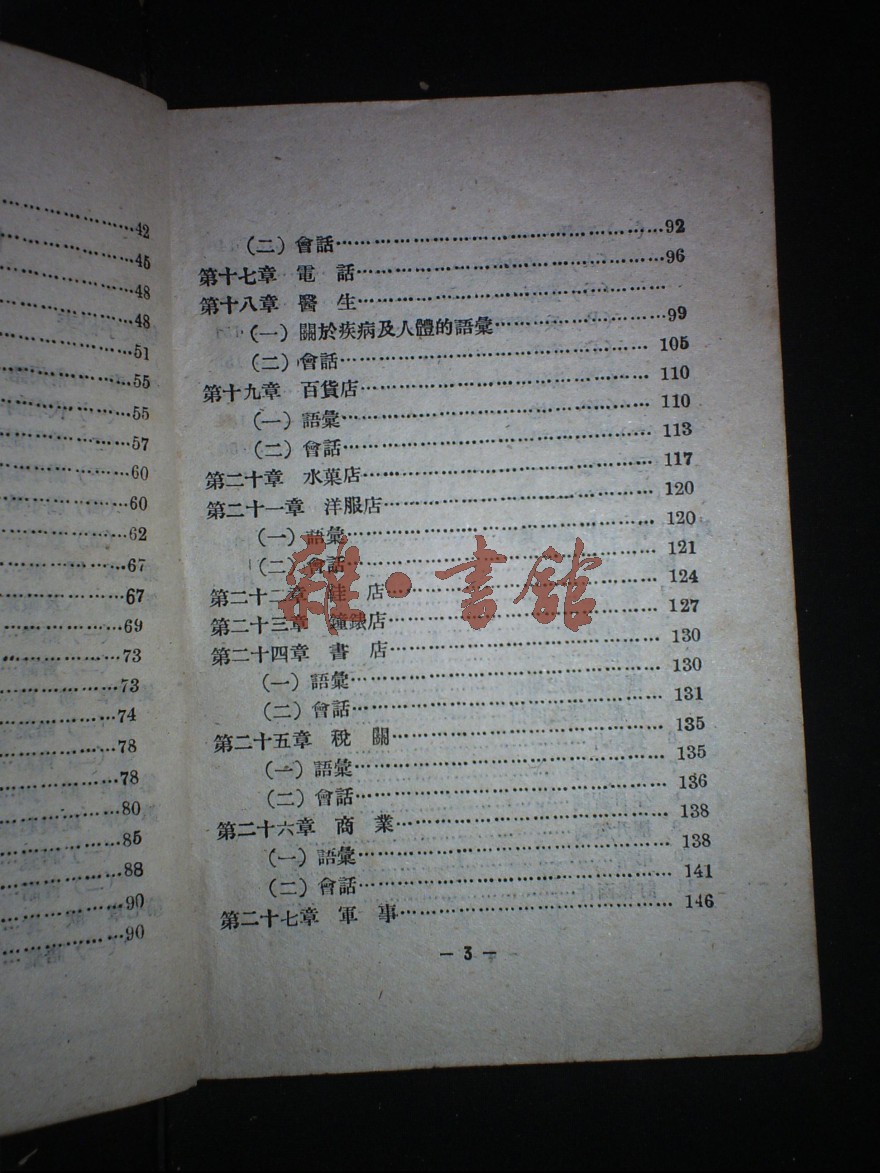 ……42
……45
……48
……48
……51
……55
……55
……57
……60
……60
……62
……67
……67
……69
……73
……73
……74
……78
……78
……80
……85
……88
……90
……90
(二)會話……92
第十七章 電 話……96
第十八章 醫 生……
(一)關於疾病及人體的語彙……99
(二)會話……105
第十九章 百貨店……110
(一)語彙……110
(二)會話……113
第二十章 水菓店……117
第二十一章 洋服店……120
(一)語彙……120
(二)會話……121
第二十二章 店……124
第二十三章 鐘錶店……127
第二十四章 書 店……130
(一)語彙……130
(二)會話……131
第二十五章 稅 關……135
(一)語彙……135
(二)會話……136
第二十六章 商 業……138
(一)語彙……138
(二)會話……141
第二十七章 軍 事……146
— 3 —
雜·書館